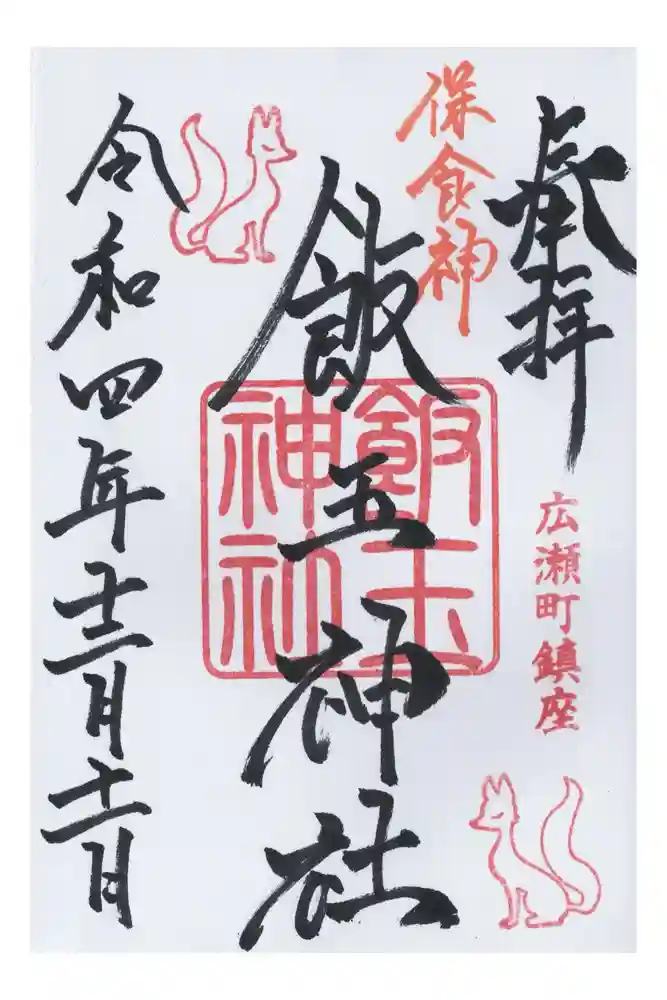 奉拝
広瀬町鎮座
保食神
飯玉神社
飯玉神社
令和四年十二月十一日